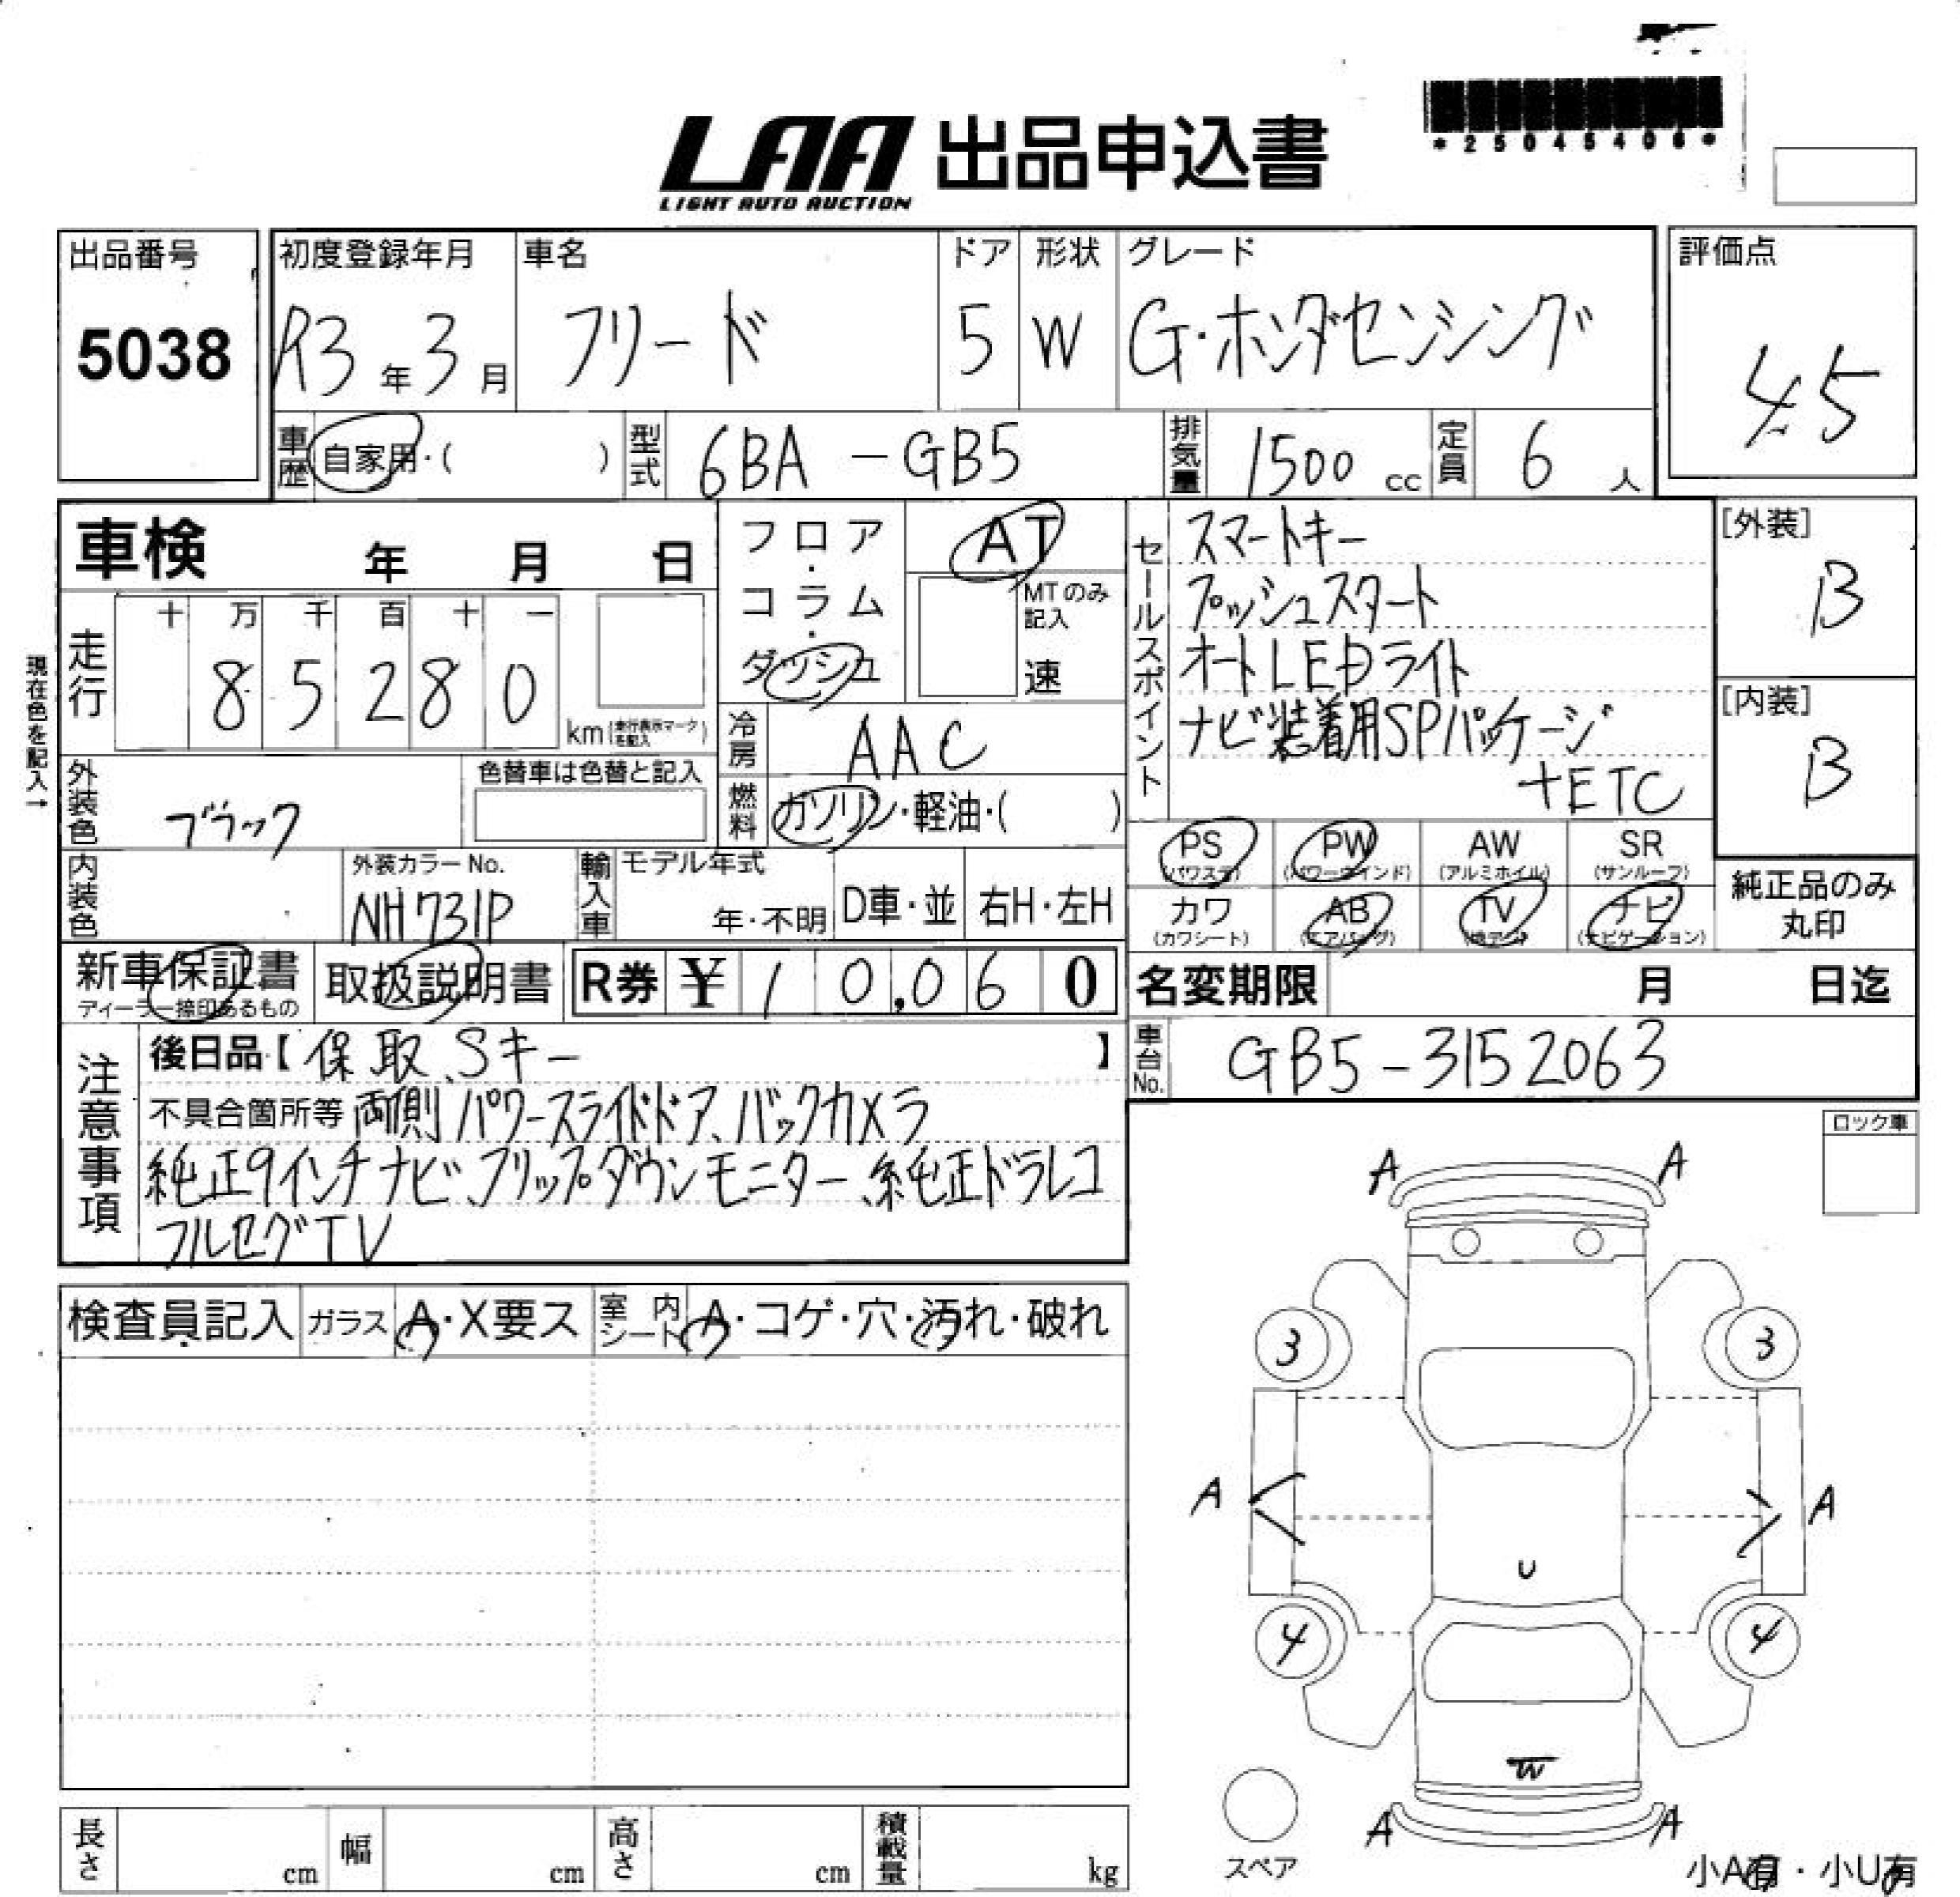 *25045406*
LAA 出品申込書
LIGHT AUTO AUCTION
出品番号 5038
初度登録年月 R3年3月
車名 フリード
ドア 5
形状 W
グレード G・ホンダセンシング
評価点 4.5
車歴 自家用・( )
型式 6BA-GB5
排気量 1500cc
定員 6人
車検 年 月 日
フロア・コラム・ダッシュ
AT
MTのみ記入
速
セールスポイント
スマートキー
プッシュスタート
オートLEDライト
ナビ装着用SPパッケージ
+ETC
[外装] B
[内装] B
現在色を記入→
走行 十 万 千 百 十 一
8 5 2 8 0
km(走行表示マークを記入)
冷房 AAC
外装色 ブラック
色替車は色替と記入
燃料 ガソリン・軽油・( )
PS (パワステ) PW (パワーウインド) AW (アルミホイル) SR (サンルーフ)
カワ (カワシート) AB (エアバッグ) TV (地デジ) ナビ (ナビゲーション)
純正品のみ丸印
内装色
外装カラーNo. NH731P
輸入車 モデル年式 年・不明 D車・並 右H・左H
新車保証書
ディーラー捺印あるもの
取扱説明書
R券 ¥10,060
名変期限 月 日迄
車台No. GB5-3152063
注意事項
後日品【保取、Sキー】
不具合箇所等 両側パワースライドドア、バックカメラ
純正9インチナビ、フリップダウンモニター、純正ドラレコ
フルセグTV
ロック車
検査員記入 ガラス A・X要ス 室内シート A・コゲ・穴・汚れ・破れ
A A
3 3
A A
U
4 4
W
A A
スペア
小A有・小U有
長さ cm 幅 cm 高さ cm 積載量 kg